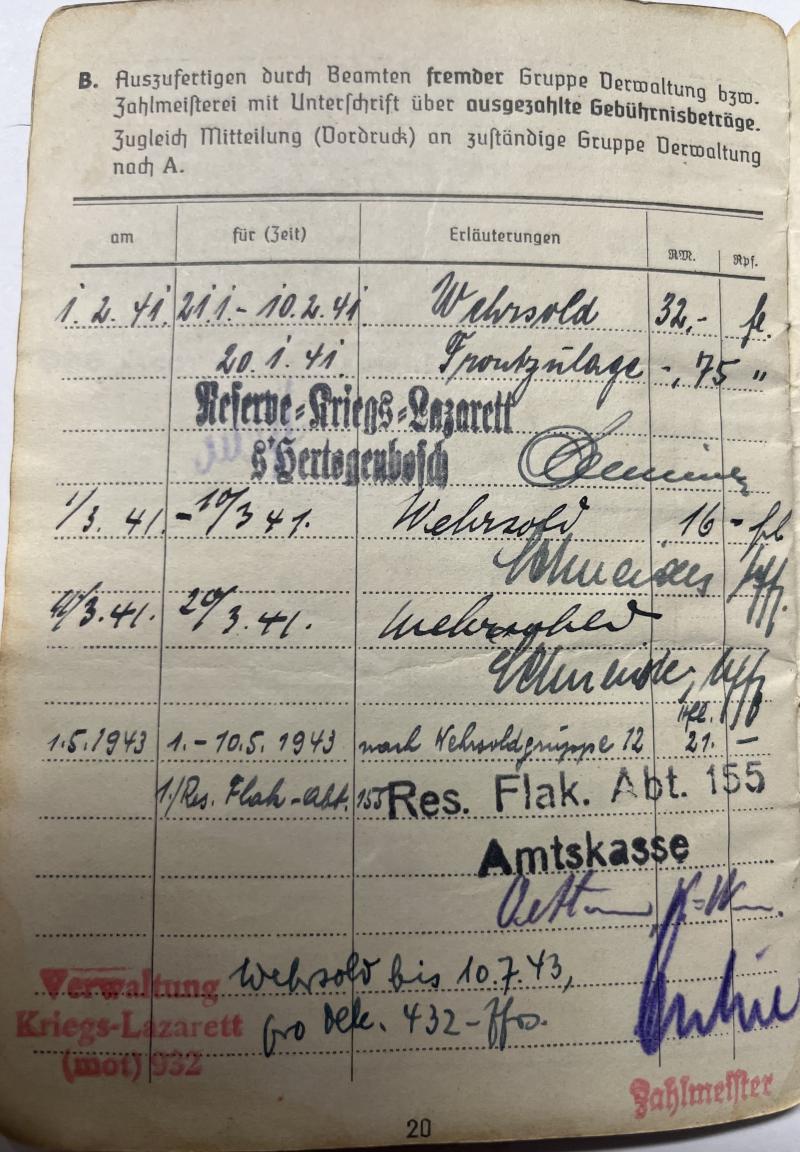 B. Auszufertigen durch Beamten fremder Gruppe Verwaltung bzw.
Zahlmeisterei mit Unterschrift über ausgezahlte Gebührnisbeträge.
Zugleich Mitteilung (Vordruck) an zuständige Gruppe Verwaltung
nach A.
am für (Zeit) Erläuterungen RM. Rpf.
1. 2. 41. 21.1.- 10.2.41. Wehrsold 32,-
20.1.41. Frontzulage -,75 "
Reserve-Kriegs-Lazarett
s'Hertogenbosch
1/3. 41. - 10/3 41. Wehrsold 16 -
Schneider Uffz.
11/3.41. 20/3.41. Wehrsold
Schneider, Uffz
1.5.1943 1.-10.5.1943 nach Wehrsoldgruppe 12 21. -
1./Res. Flak-Abt. 155 Res. Flak. Abt. 155
Amtskasse
Verwaltung Wehrsold bis 10.7.43,
Kriegs-Lazarett pro Dek. 432-ffrs.
(mot) 932
Zahlmeister
20